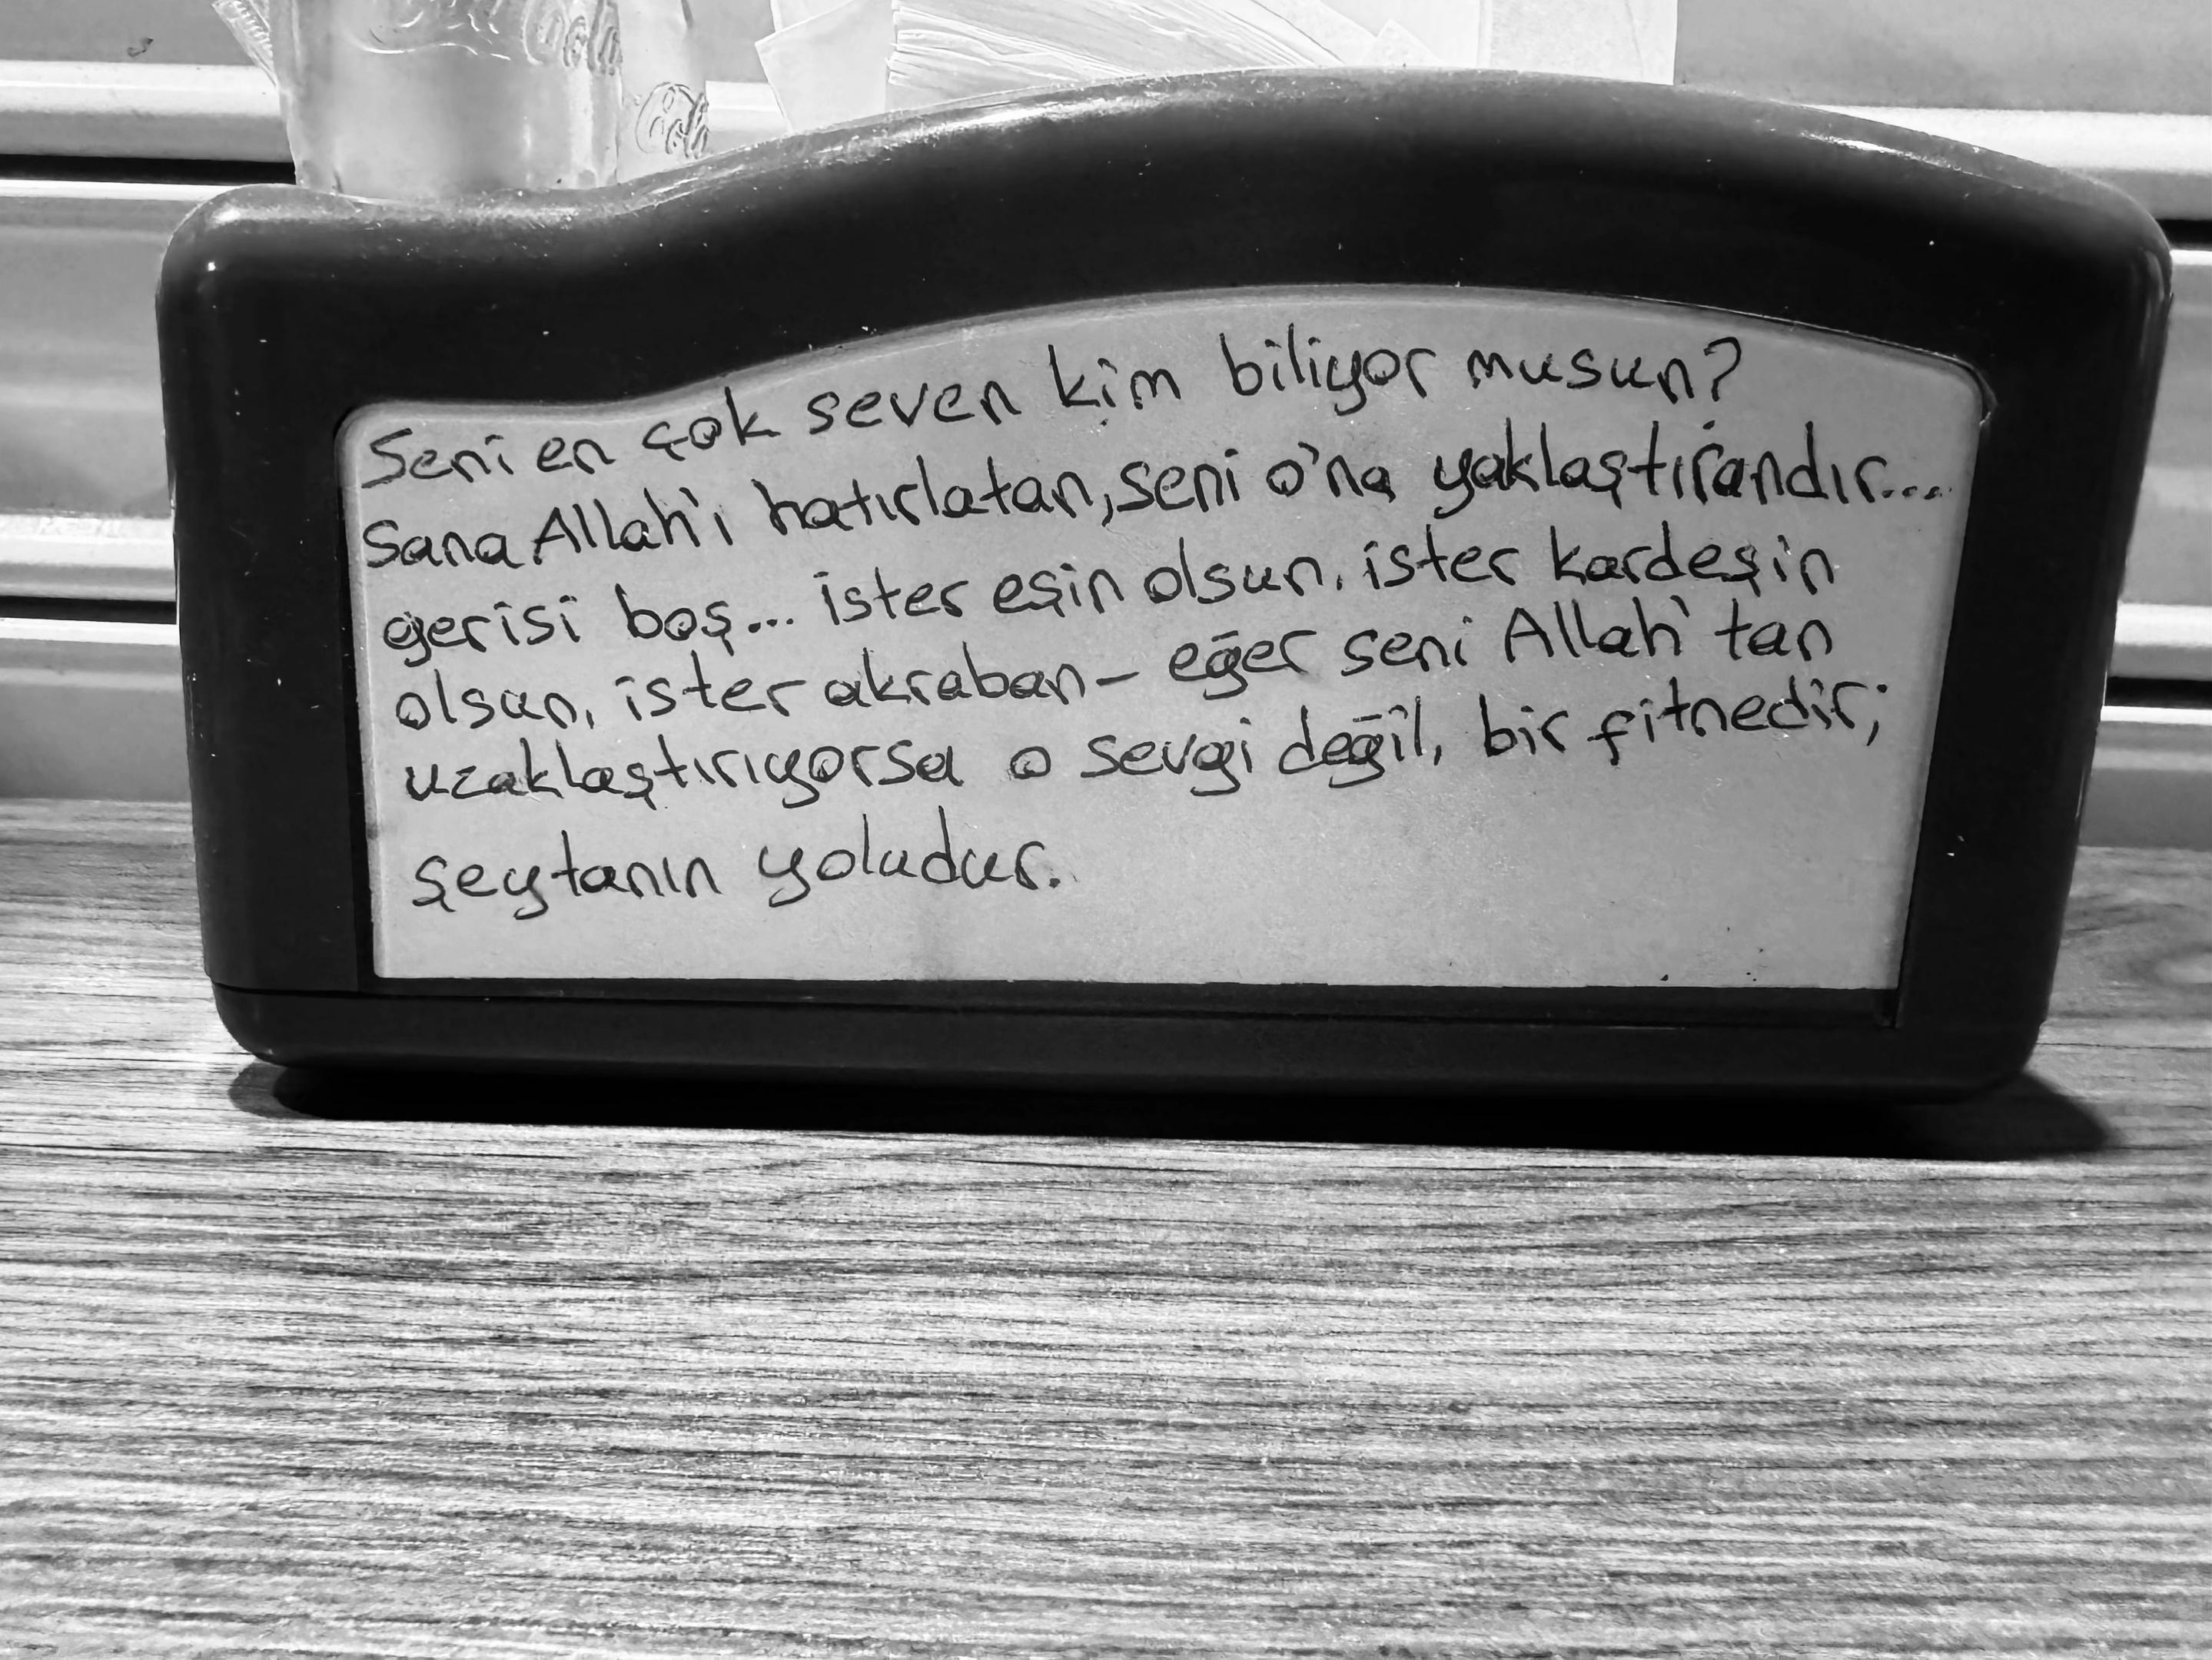 Seni en çok seven kim biliyor musun?
Sana Allah'ı hatırlatan, seni o'na yaklaştırandır...
gerisi boş... ister eşin olsun, ister kardeşin
olsun, ister akraban - eğer seni Allah'tan
uzaklaştırıyorsa o sevgi değil, bir fitnedir;
şeytanın yoludur.